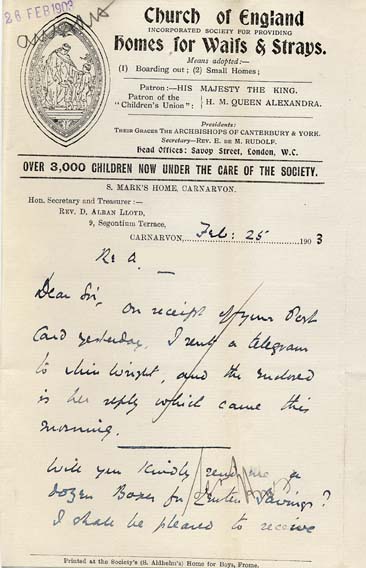 26 FEB 1903
Church of England
INCORPORATED SOCIETY FOR PROVIDING
Homes for Waifs & Strays.
Means adopted:—
(1) Boarding out; (2) Small Homes;
Patron:—HIS MAJESTY THE KING.
Patron of the "Children's Union": } H. M. QUEEN ALEXANDRA.
Presidents:
THEIR GRACES THE ARCHBISHOPS OF CANTERBURY & YORK.
Secretary—REV. E. DE M. RUDOLF.
Head Offices: Savoy Street, London, W.C.
OVER 3,000 CHILDREN NOW UNDER THE CARE OF THE SOCIETY.
S. MARK'S HOME, CARNARVON.
Hon. Secretary and Treasurer:—
REV. D. ALBAN LLOYD,
9, Segontium Terrace,
CARNARVON, Feb: 25 1903
Re A.
Dear Sir, On receipt of your Post
Card yesterday, I sent a telegram
to Miss Wright, and the enclosed
is her reply which came this
morning.
Will you kindly send me a
dozen Boxes for Lenten Savings?
I shall be pleased to receive
Printed at the Society's (S. Aldhelm's) Home for Boys, Frome.